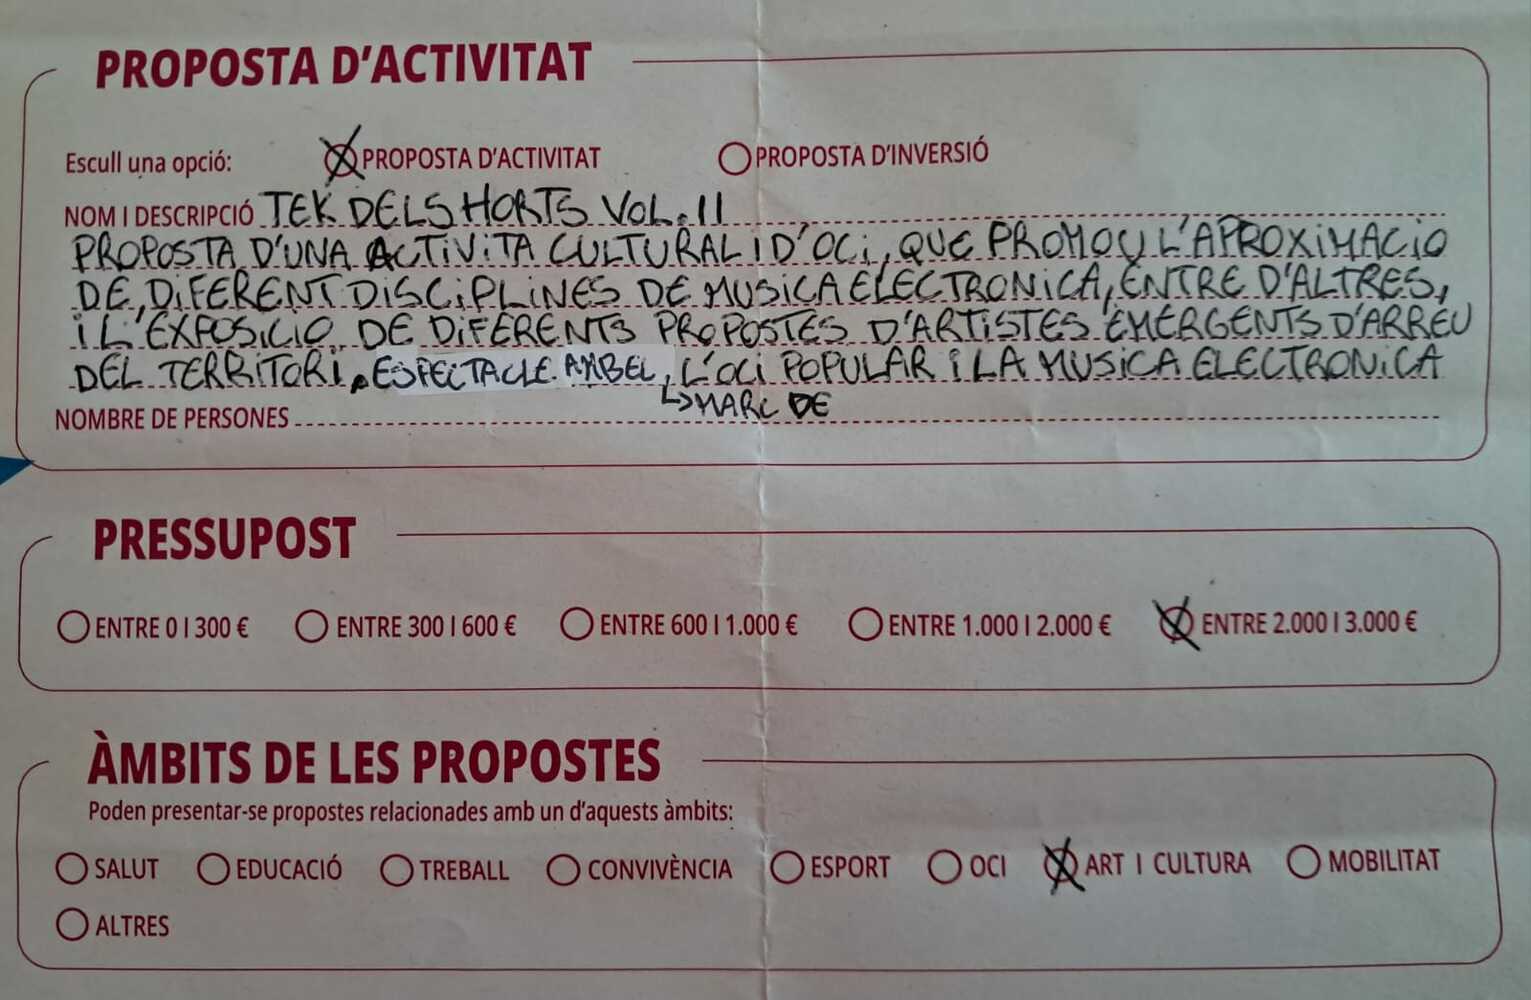 PROPOSTA D'ACTIVITAT
Escull una opció: PROPOSTA D'ACTIVITAT PROPOSTA D'INVERSIÓ
NOM I DESCRIPCIÓ TEK DELS HORTS VOL. II
PROPOSTA D'UNA ACTIVITA CULTURAL I D'OCI, QUE PROMOU L'APROXIMACIO
DE DIFERENT DISCIPLINES DE MUSICA ELECTRONICA, ENTRE D'ALTRES,
I L'EXPOSICIO DE DIFERENTS PROPOSTES D'ARTISTES EMERGENTS D'ARREU
DEL TERRITORI, ESPECTACLE AMBEL L'OCI POPULAR I LA MUSICA ELECTRONICA
↳MARC DE
NOMBRE DE PERSONES
PRESSUPOST
ENTRE 0 I 300 € ENTRE 300 I 600 € ENTRE 600 I 1.000 € ENTRE 1.000 I 2.000 € ENTRE 2.000 I 3.000 €
ÀMBITS DE LES PROPOSTES
Poden presentar-se propostes relacionades amb un d'aquests àmbits:
SALUT EDUCACIÓ TREBALL CONVIVÈNCIA ESPORT OCI ART I CULTURA MOBILITAT
ALTRES